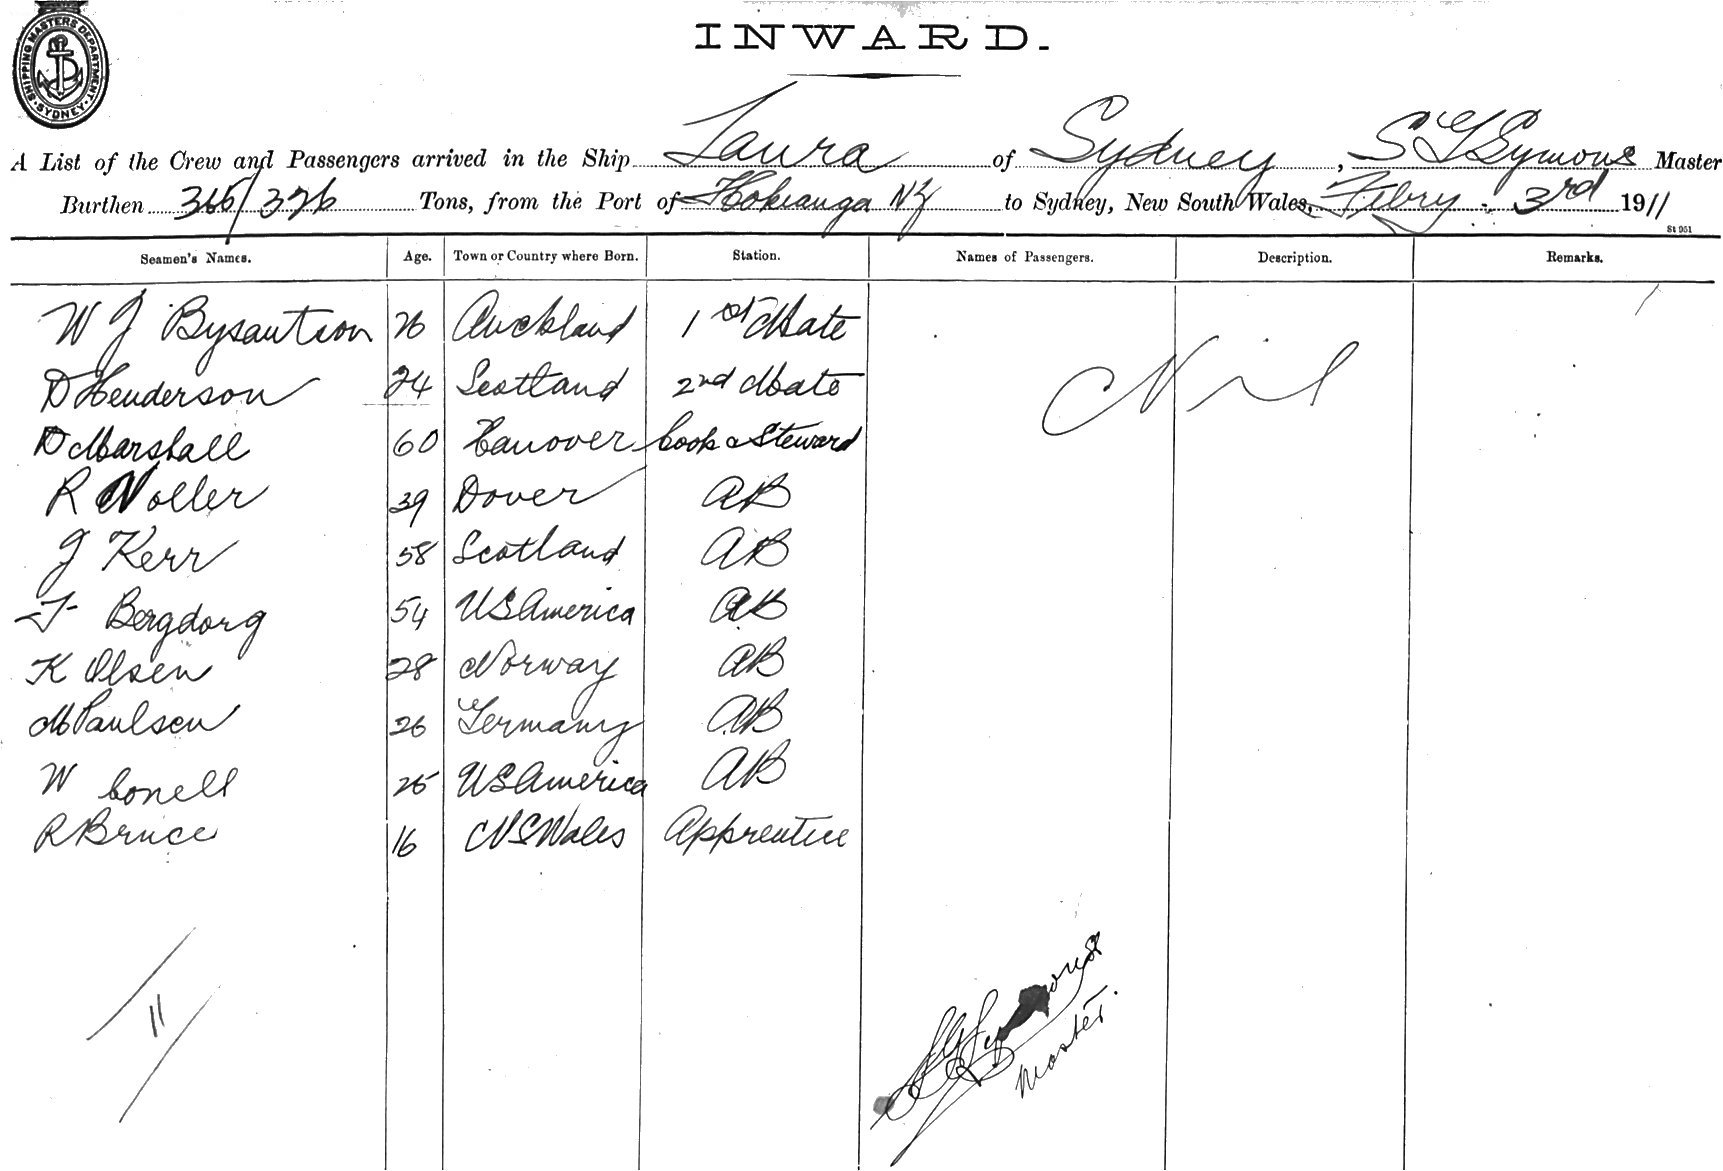 SHIPPING MASTERS DEPARTMENT
SYDNEY
INWARD.
A List of the Crew and Passengers arrived in the Ship Laura of Sydney, S G Symons Master
Burthen 366/326 Tons, from the Port of Hokianga NZ to Sydney, New South Wales, Febry 3rd 1911
St 951
Seamen's Names. Age. Town or Country where Born. Station. Names of Passengers. Description. Remarks.
W J 26 Auckland 1st Mate
Nil
D Henderson 24 Scotland 2nd Mate
D Marshall 60 Hanover Cook & Steward
R Noller 39 Dover AB
J Kerr 58 Scotland AB
Bergdorg 54 US America AB
K Olsen 28 Norway AB
M Paulsen 26 Germany AB
W Conell 25 US America AB
R Bruce 16 N S Wales Apprentice
11
S G Symons
Master.